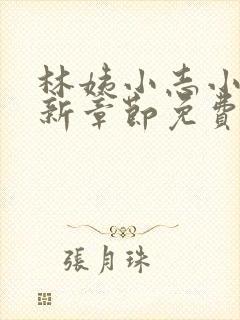 林姨小志小
新章節免費
張月珠